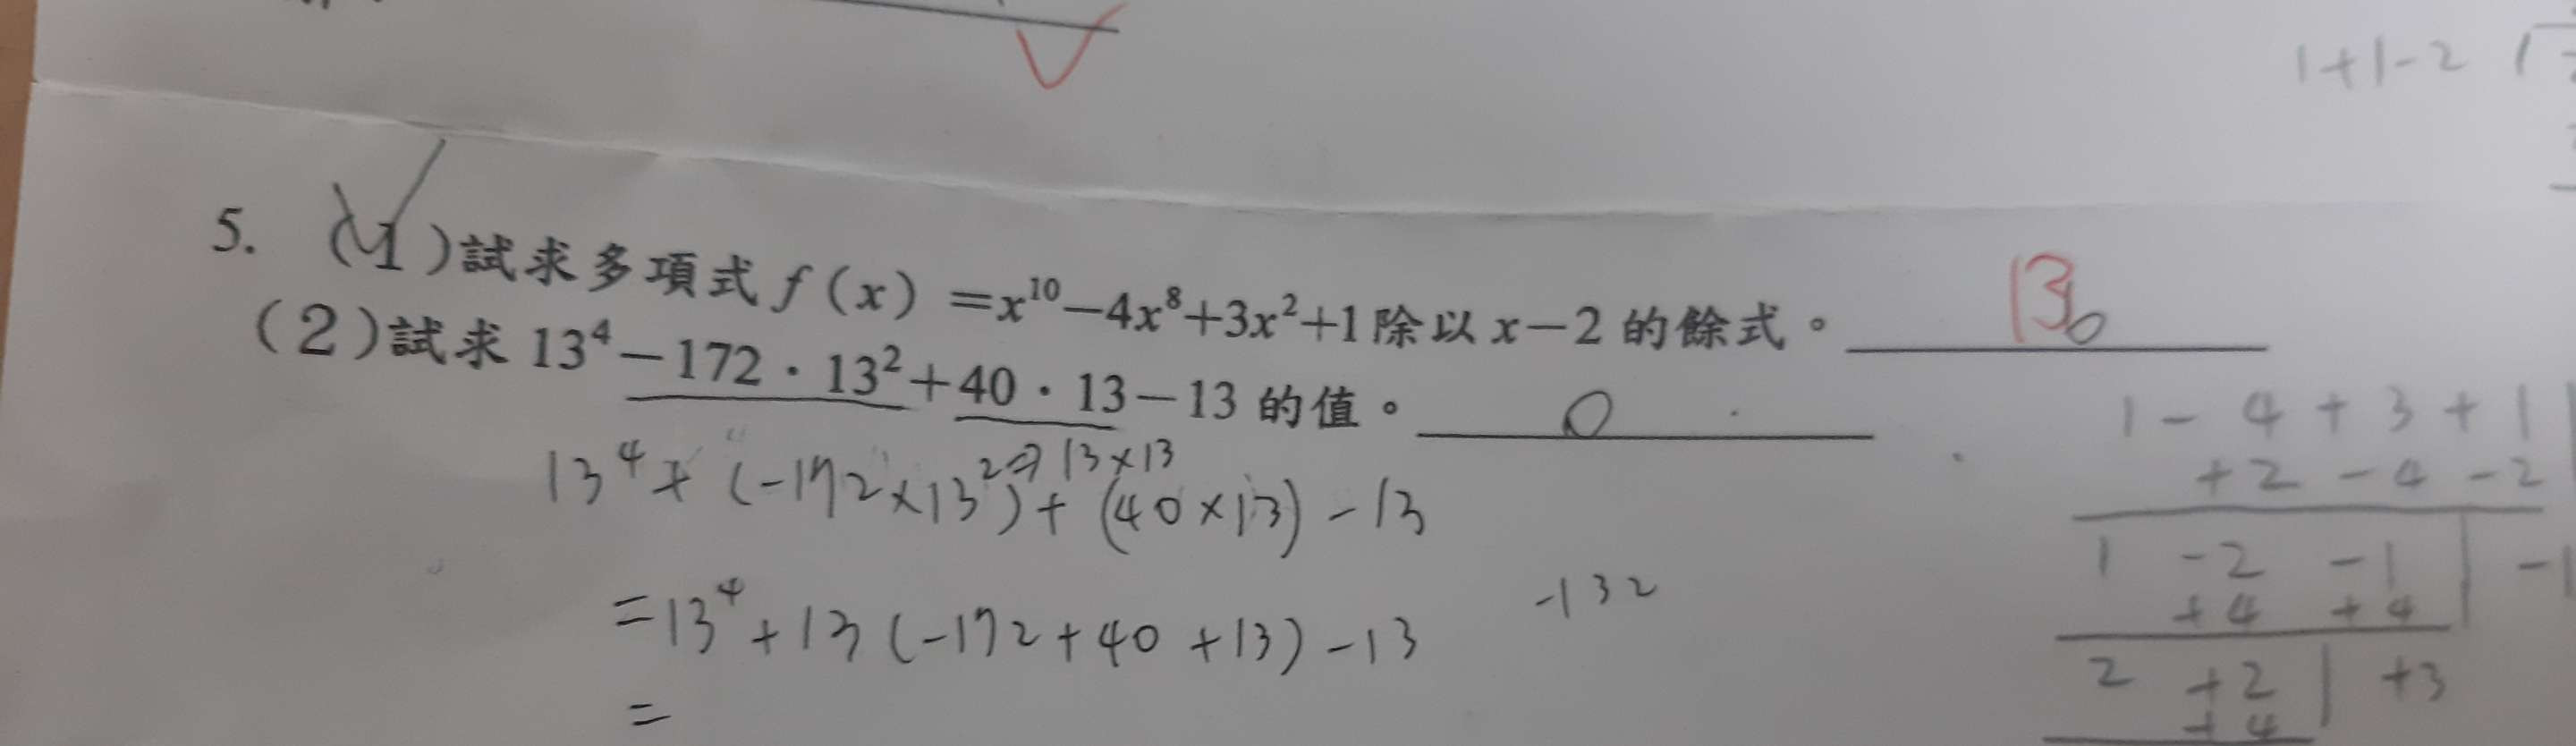 1+1-2
5. (1)試求多項式 f(x) =x¹⁰-4x⁸+3x²+1除以 x-2 的餘式。 13
(2)試求 13⁴-172·13²+40·13-13 的值。 0
13⁴+(-172×13²)+(40×13)-13
⇒13×13
=13⁴+13(-172+40+13)-13
-132
=
1-4+3+1
+2-4-2
1 -2 -1 -1
+4 +4
2 +2 +3
+4